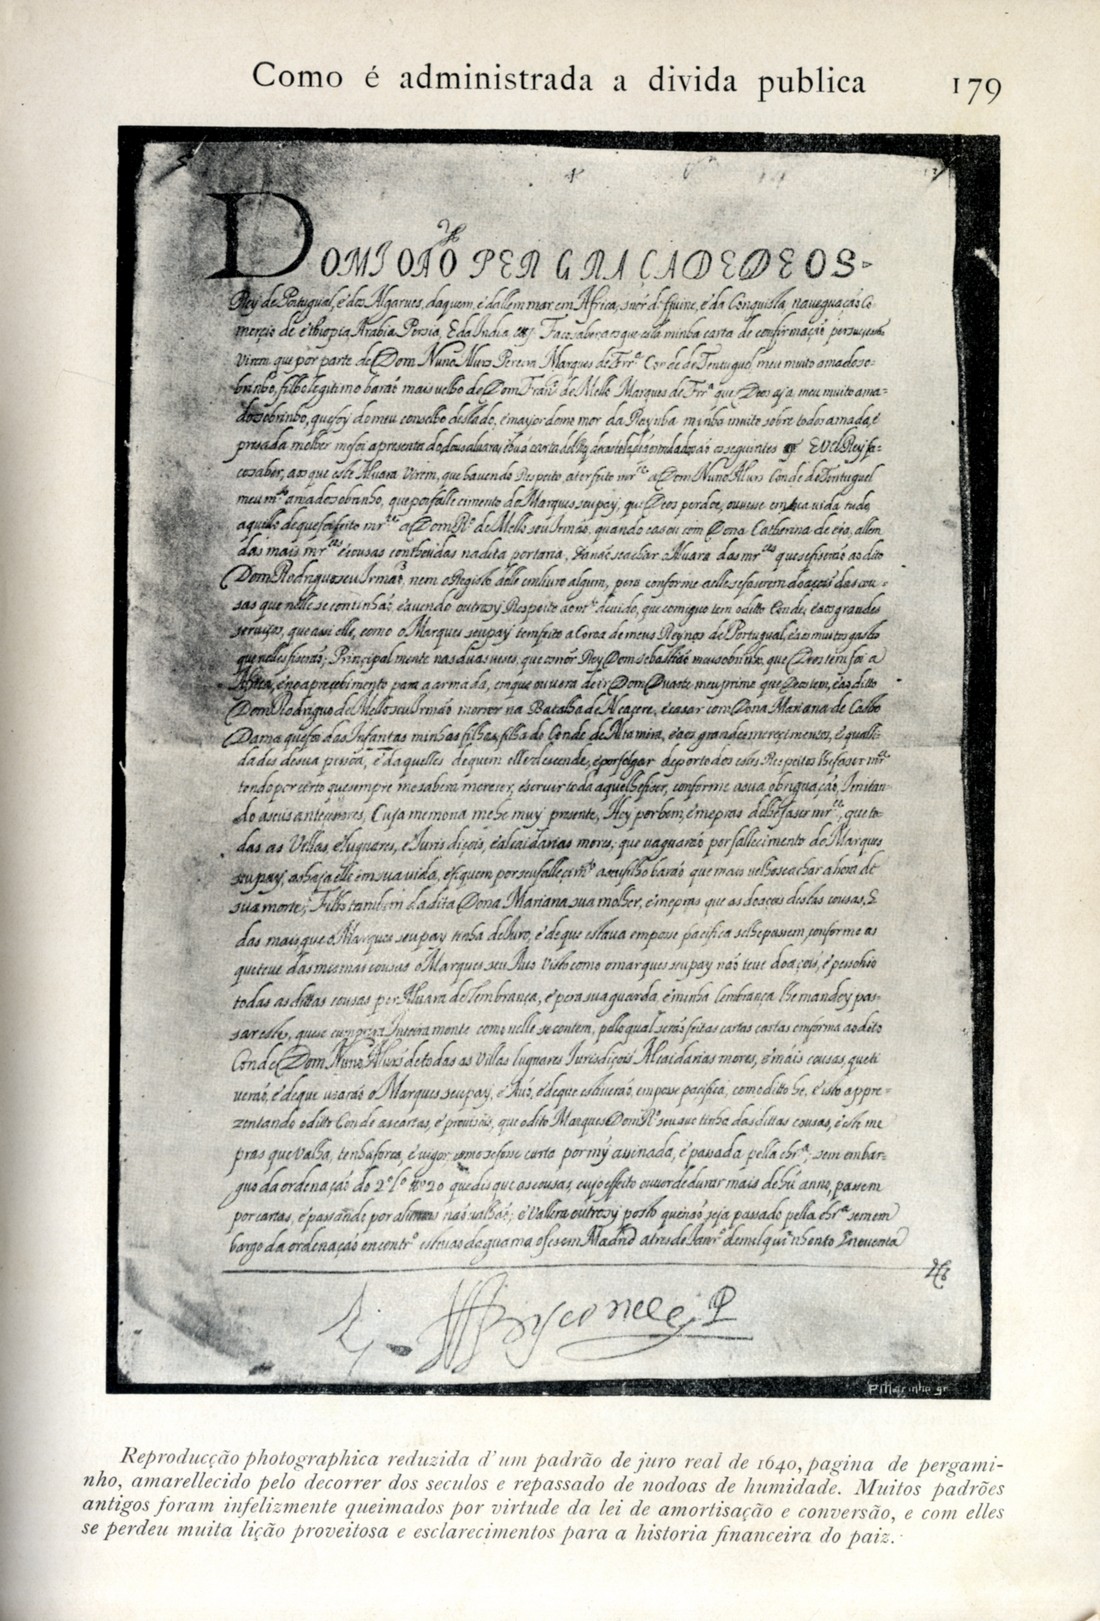 Como é administrada a divida publica 179
DOM JOÃO PER GRAÇA DE DEOS
Rey de Portugual, e dos Algarves, daquem, e dallem mar em Africa, snõr de Guine, e da Conquista, naveguação Co-
mercio de ethiopia Arabia Persia, E da India, &
virem que por parte de Dom Nuno Alvrs Pereira Marques de Frrª Conde de Tentuguel, meu muito amado so-
brinho, filho legitimo barão mais velho de Dom Franco de Mello Marques de Frrª que Deos aja, meu muito ama-
do sobrinho, que foy do meu conselho destado, e mayordomo mor da Raynha minha muito sobre todos amada, e
presada molher me foi apresentado
co saber, aos que este Alvara virem, que havendo Respeito, a ter feito mrce a Dom Nuno Alvrs Conde de Tentuguel
meu mto amado sobrinho, que por fallecimento do Marques seu pay, que Deos perdoe, ouvese em sua vida tudo
aquillo de que foi feito mrce a Dom Rº de Mello seu Irmão, quando casou com Dona Catherina de eça, allem
das mais mrces e cousas contheudas na dita portaria, & não se achar o Alvara das mrces que se fiserão ao dito
Dom Rodriguo seu Irmão, nem o Registo delle em livro algum, pera conforme a elle se fazerem doações das cou-
sas que nelle se continhão, e avendo outrosy Respeito ao devido, que comiguo tem o ditto Conde, e aos grandes
serviços, que assi elle, como o Marques seu pay tem feito a Coroa de meus Reynos de Portugual, e aos muitos gastos
que nelles fiserão, Principalmente nas duas veses, que o snõr Rey Dom Sebastião meu sobrinho, que Deos tem foi a
Africa, e no apercebimento para a armada, em que ouvera de ir Dom Duarte meu primo que Deos tem, e ao ditto
Dom Rodriguo de Mello seu Irmão morrer na Batalha de Alcacere, e casar com Dona Mariana de Castro
Dama que foi das Infantas minhas filhas, filha do Conde de Altamira, e aos grandes merecimentos, e quali-
dades de sua pessoa, e daquelles de quem elle descende, e por folgar de por todos estes Respeitos lhe faser mrce
tendo por certo que sempre me sabera merecer, e servir toda a que lhe fiser, conforme a sua obriguação, Imitan-
do a seus antecessores, Cuja memoria me he muy presente, Hey por bem, e me pras de lhe faser mrce, que to-
das as Villas, e luguares, e Jurisdições, e alcaidarias mores, que vaguarão por fallecimento do Marques
seu pay, as haja elle em sua vida, e fiquem por seu fallecimto a seu filho barão que mais velho se achar a hora de
sua morte, Filho tambem da dita Dona Mariana sua molher, e me pras que as doações destas cousas, E
das mais que o Marques seu pay tinha de Juro, e de que estava em posse pacifica se lhe passem, conforme as
que teve das mesmas cousas o Marques seu Avo visto como o marques seu pay não teve doações, e
todas as dittas cousas por Alvara de lembrança, e pera sua guarda, e minha lembrança lhe mandey pas-
sar este, que se cumprira Inteiramente como nelle se contem, pello qual serão feitas cartas em forma ao dito
Conde Dom Nuno Alvrs de todas as Villas luguares Jurisdições Alcaidarias mores, e mais cousas, que ti-
verão, e de que usarão o Marques seu pay, e Avó, e de que estiverão, em posse pacifica, como ditto he, e isto appre-
zentando o ditto Conde as cartas, e provisões, que o dito Marques Dom Rº seu avo tinha das dittas cousas, e este me
pras que valha, tenha força, e vigor como se fosse carta por my assinada, e passada pella chrª, sem embar-
guo da ordenação do 2º lº tº 20 que dis que as cousas, cujo effeito ouver de durar mais de hũ anno, passem
por cartas, e passando por alvaras não valhão; e Vallera outrosy posto que não seja passado pella chrª sem em-
bargo da ordenação em contrº
P. Marinho gr.
Reproducção photographica reduzida d'um padrão de juro real de 1640, pagina de pergami-
nho, amarellecido pelo decorrer dos seculos e repassado de nodoas de humidade. Muitos padrões
antigos foram infelizmente queimados por virtude da lei de amortisação e conversão, e com elles
se perdeu muita lição proveitosa e esclarecimentos para a historia financeira do paiz.